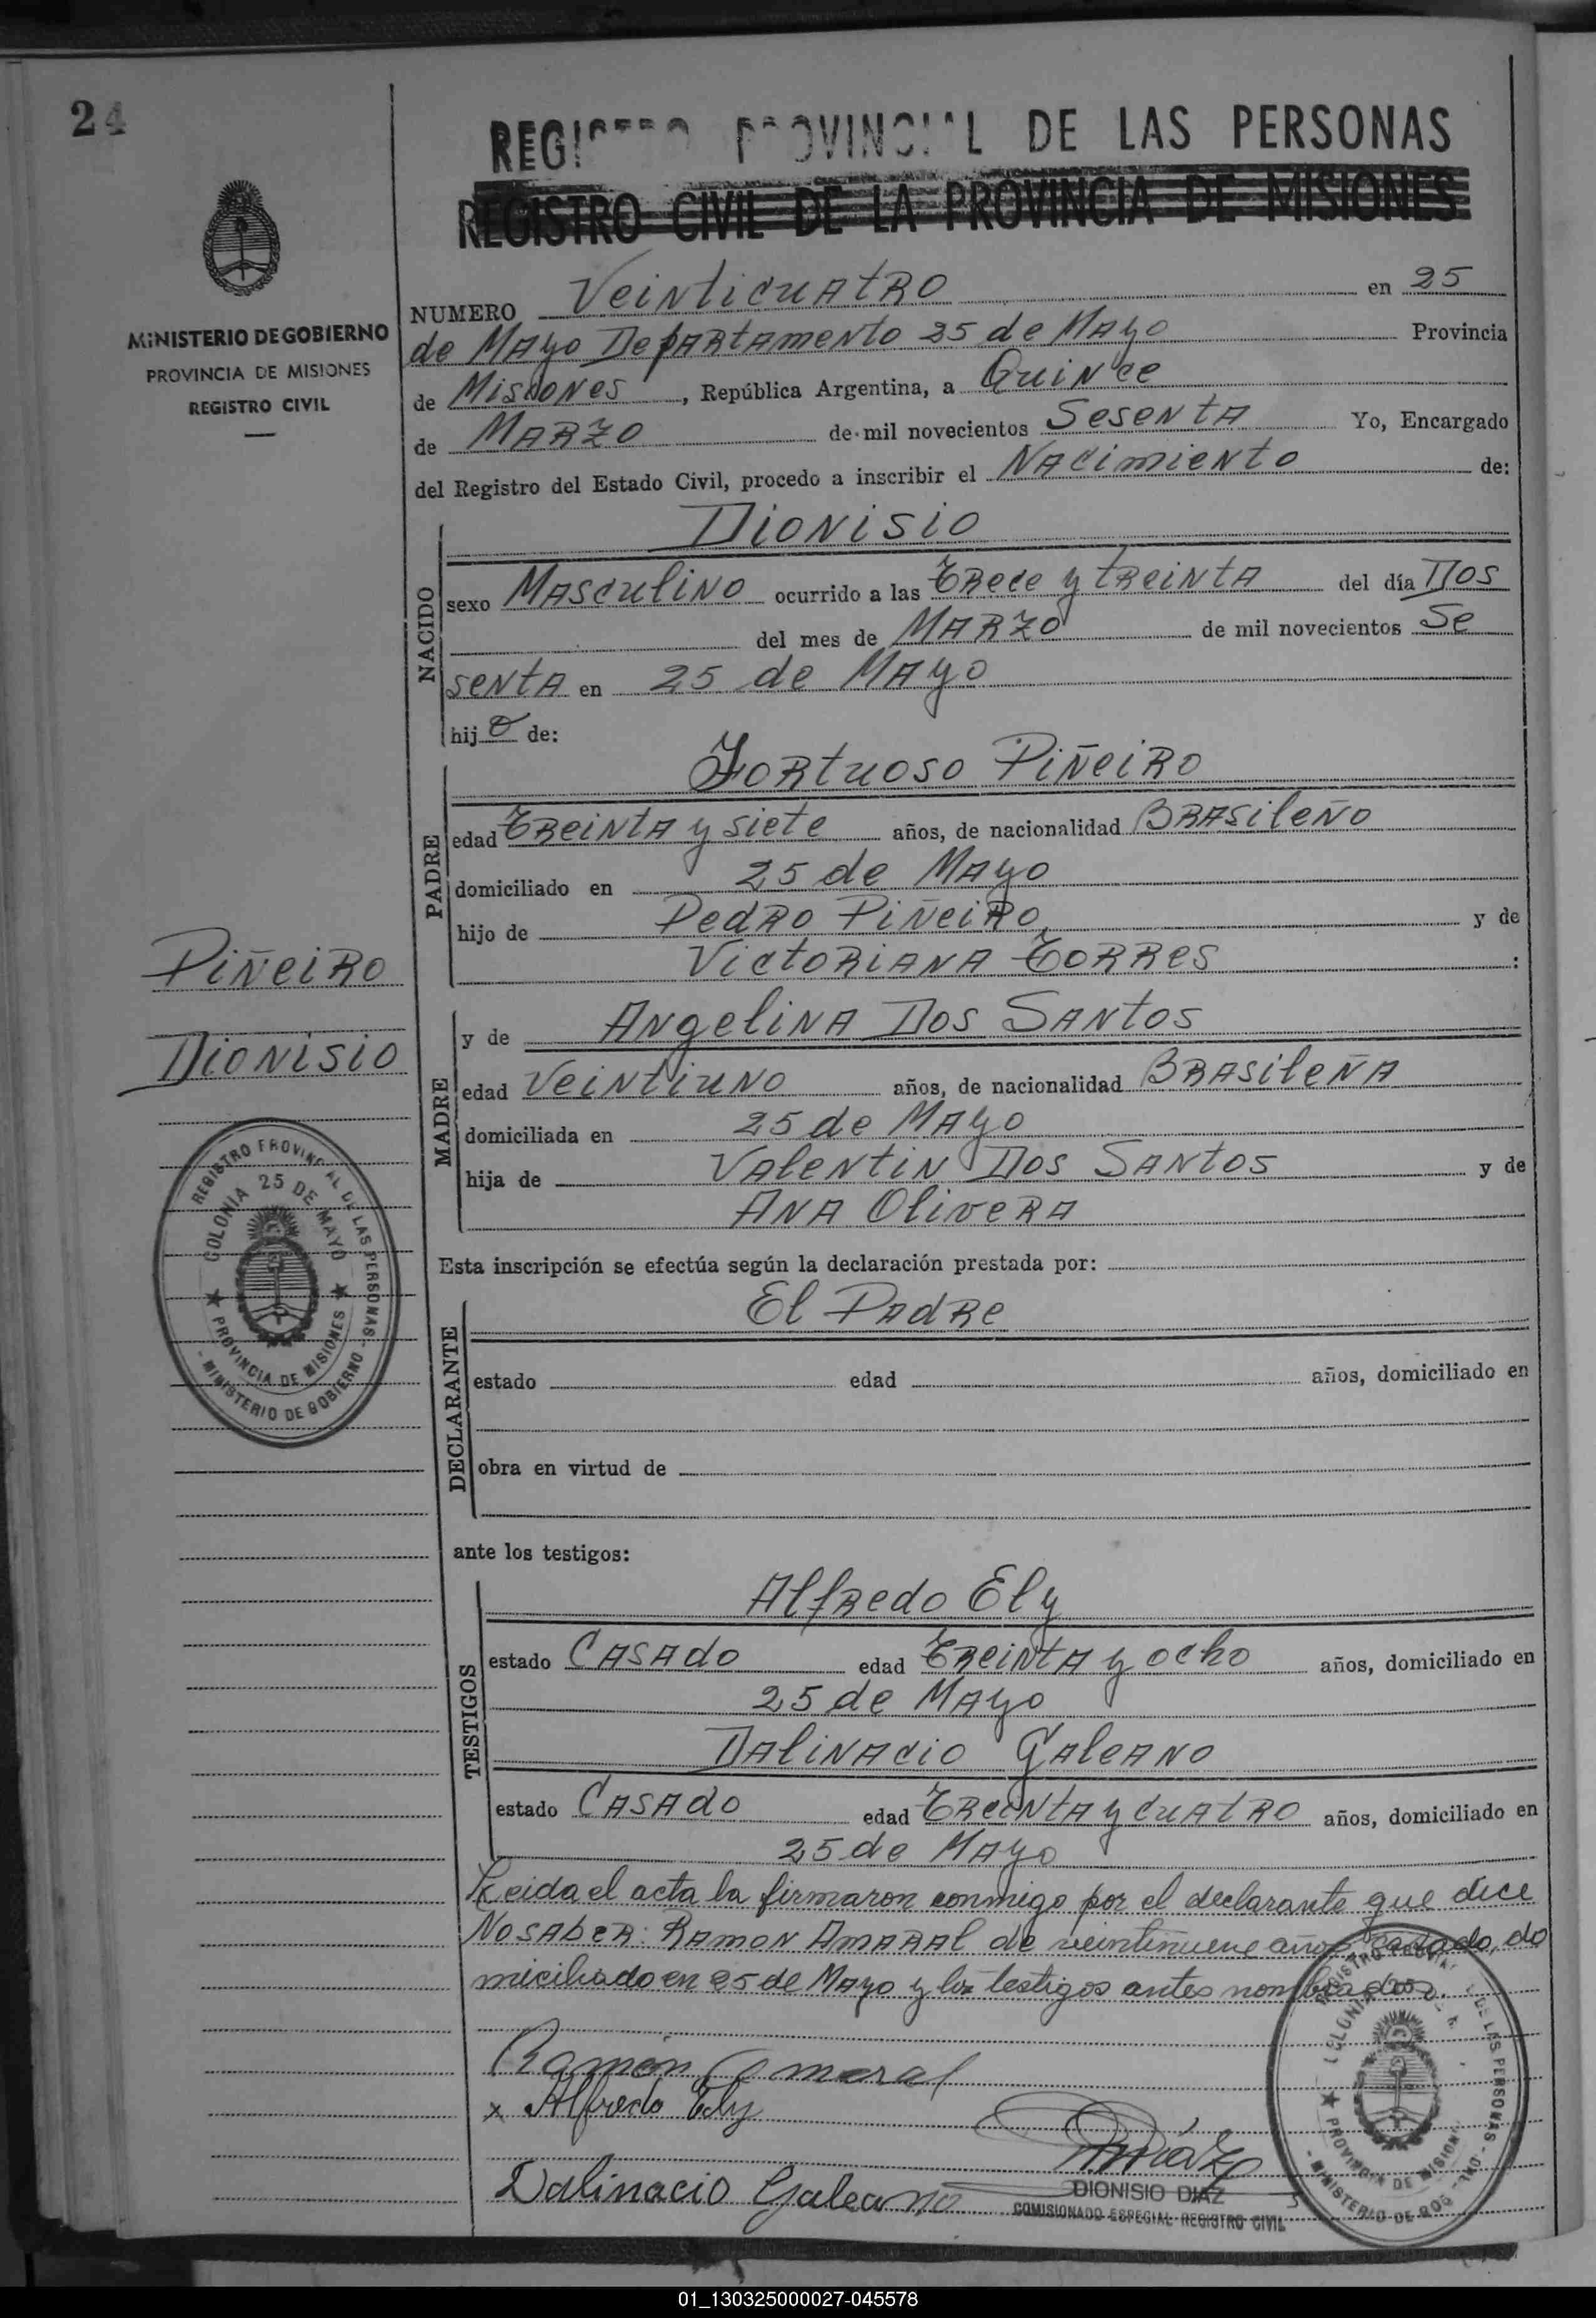 24
REGISTRO PROVINCIAL DE LAS PERSONAS
REGISTRO CIVIL DE LA PROVINCIA DE MISIONES
MINISTERIO DE GOBIERNO
PROVINCIA DE MISIONES
REGISTRO CIVIL
NUMERO Veinticuatro en 25
de Mayo Departamento 25 de Mayo Provincia
de Misiones, República Argentina, a Quince
de Marzo de mil novecientos Sesenta Yo, Encargado
del Registro del Estado Civil, procedo a inscribir el Nacimiento de:
NACIDO
Dionisio
sexo Masculino ocurrido a las Trece y treinta del día Dos
del mes de Marzo de mil novecientos Se
senta en 25 de Mayo
hijo de:
PADRE
Fortuoso Piñeiro
edad Treinta y siete años, de nacionalidad Brasileño
domiciliado en 25 de Mayo
hijo de Pedro Piñeiro y de
Victoriana Torres :
Piñeiro
Dionisio
MADRE
y de Angelina Dos Santos
edad Veintiuno años, de nacionalidad Brasileña
domiciliada en 25 de Mayo
hija de Valentin Dos Santos y de
Ana Olivera
REGISTRO PROVINCIAL DE LAS PERSONAS - MINISTERIO DE GOBIERNO -
COLONIA 25 DE MAYO ★ PROVINCIA DE MISIONES ★
Esta inscripción se efectúa según la declaración prestada por:
DECLARANTE
El Padre
estado edad años, domiciliado en
obra en virtud de
ante los testigos:
TESTIGOS
Alfredo Ely
estado Casado edad Treinta y ocho años, domiciliado en
25 de Mayo
Dalinacio Galeano
estado Casado edad Treinta y cuatro años, domiciliado en
25 de Mayo
Leida el acta la firmaron conmigo por el declarante que dice
No saber: Ramon Amaral de veintinueve años, casado, do
miciliado en 25 de Mayo y los testigos antes nombrados.
Ramón Amaral
x Alfredo Ely
Díaz
Dalinacio Galeano
DIONISIO DIAZ
COMISIONADO ESPECIAL REGISTRO CIVIL
01_130325000027-045578